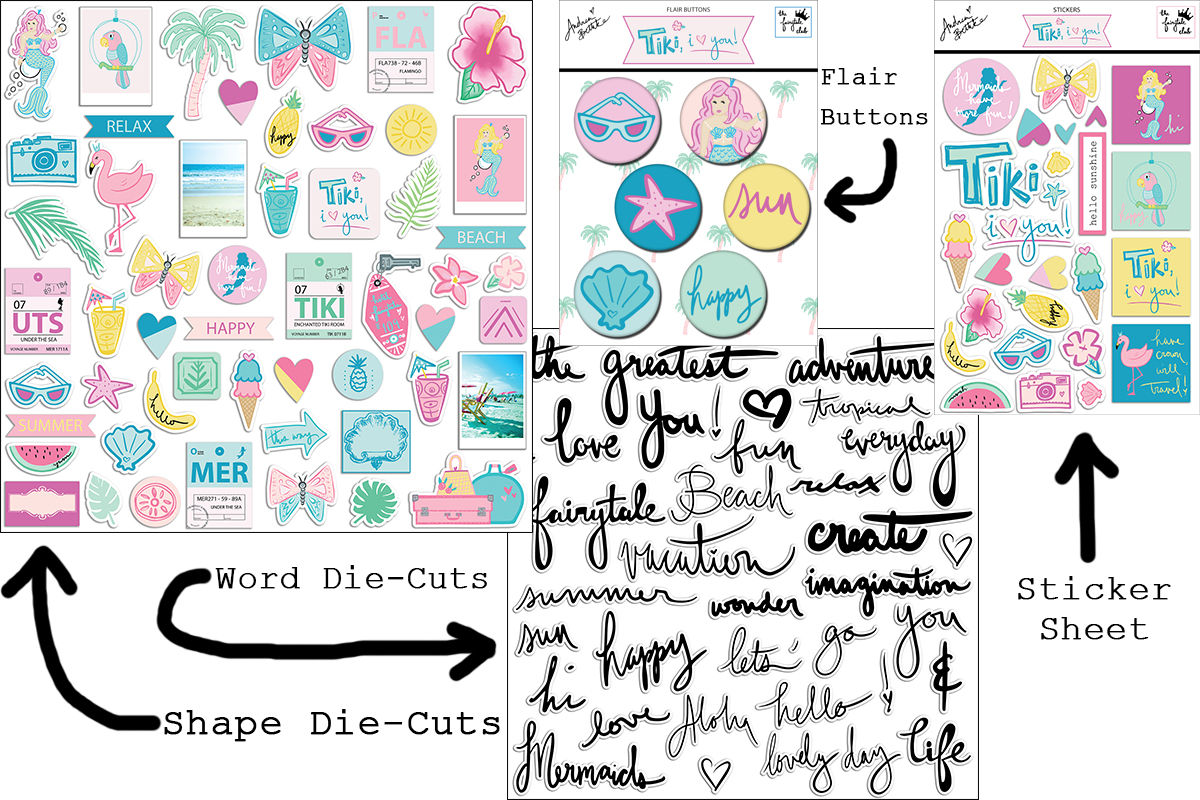 FLA
FLA738 - 72 - 46B
FLAMINGO
RELAX
happy
Tiki,
i you!
BEACH
07
UTS
UNDER THE SEA
VOYAGE NUMBER MER 1711A
Mermaids
have
more fun!
63/284
07
TIKI
ENCHANTED TIKI ROOM
VOYAGE NUMBER TIK 07118
HAPPY
hello
SUMMER
this way
MER
MER271 - 59 - 89A
UNDER THE SEA
Andrea
FLAIR BUTTONS
Tiki, i you!
the
fairytale
club
sun
happy
Flair
Buttons
Andrea
STICKERS
Tiki, i you!
the
fairytale
club
Mermaids
have
more fun!
hi
Tiki
i you!
hello sunshine
happy
Tiki,
i you!
happy
hello
have
crown
will
travel!
the greatest adventure
love you! tropical
fun everyday
fairytale Beach relax
vacation create
summer wonder imagination
sun happy lets' go you
hi &
love Aloha hello !
Mermaids lovely day life
Word Die-Cuts
Shape Die-Cuts
Sticker
Sheet